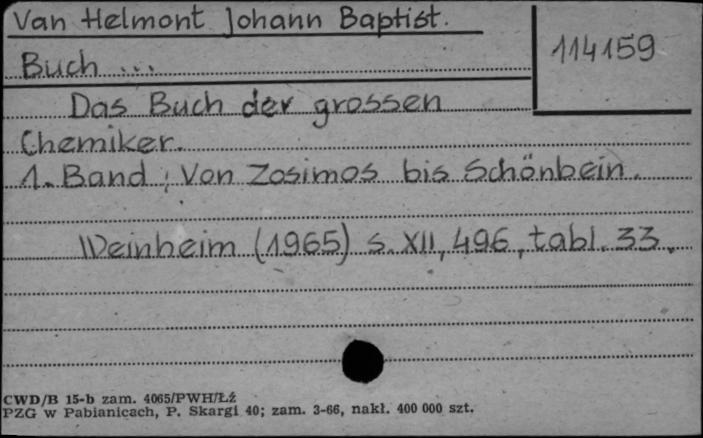 Van Helmont Johann Baptist.
114159
Buch ...
Das Buch der grossen
Chemiker.
1. Band: Von Zosimos bis Schönbein.
Weinheim (1965) s. XII, 496, tabl. 33.
CWD/B 15-b zam. 4065/PWH/Łź
PZG w Pabianicach, P. Skargi 40; zam. 3-66, nakł. 400 000 szt.